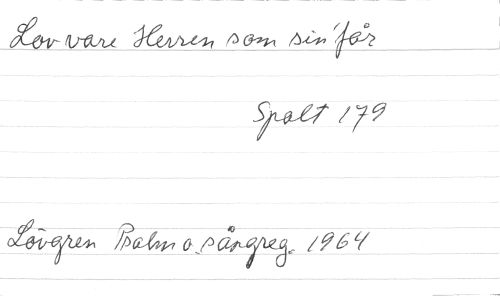 Lov vare Herren som sin' får
Spalt 179
Lövgren Psalm o. sångreg. 1964